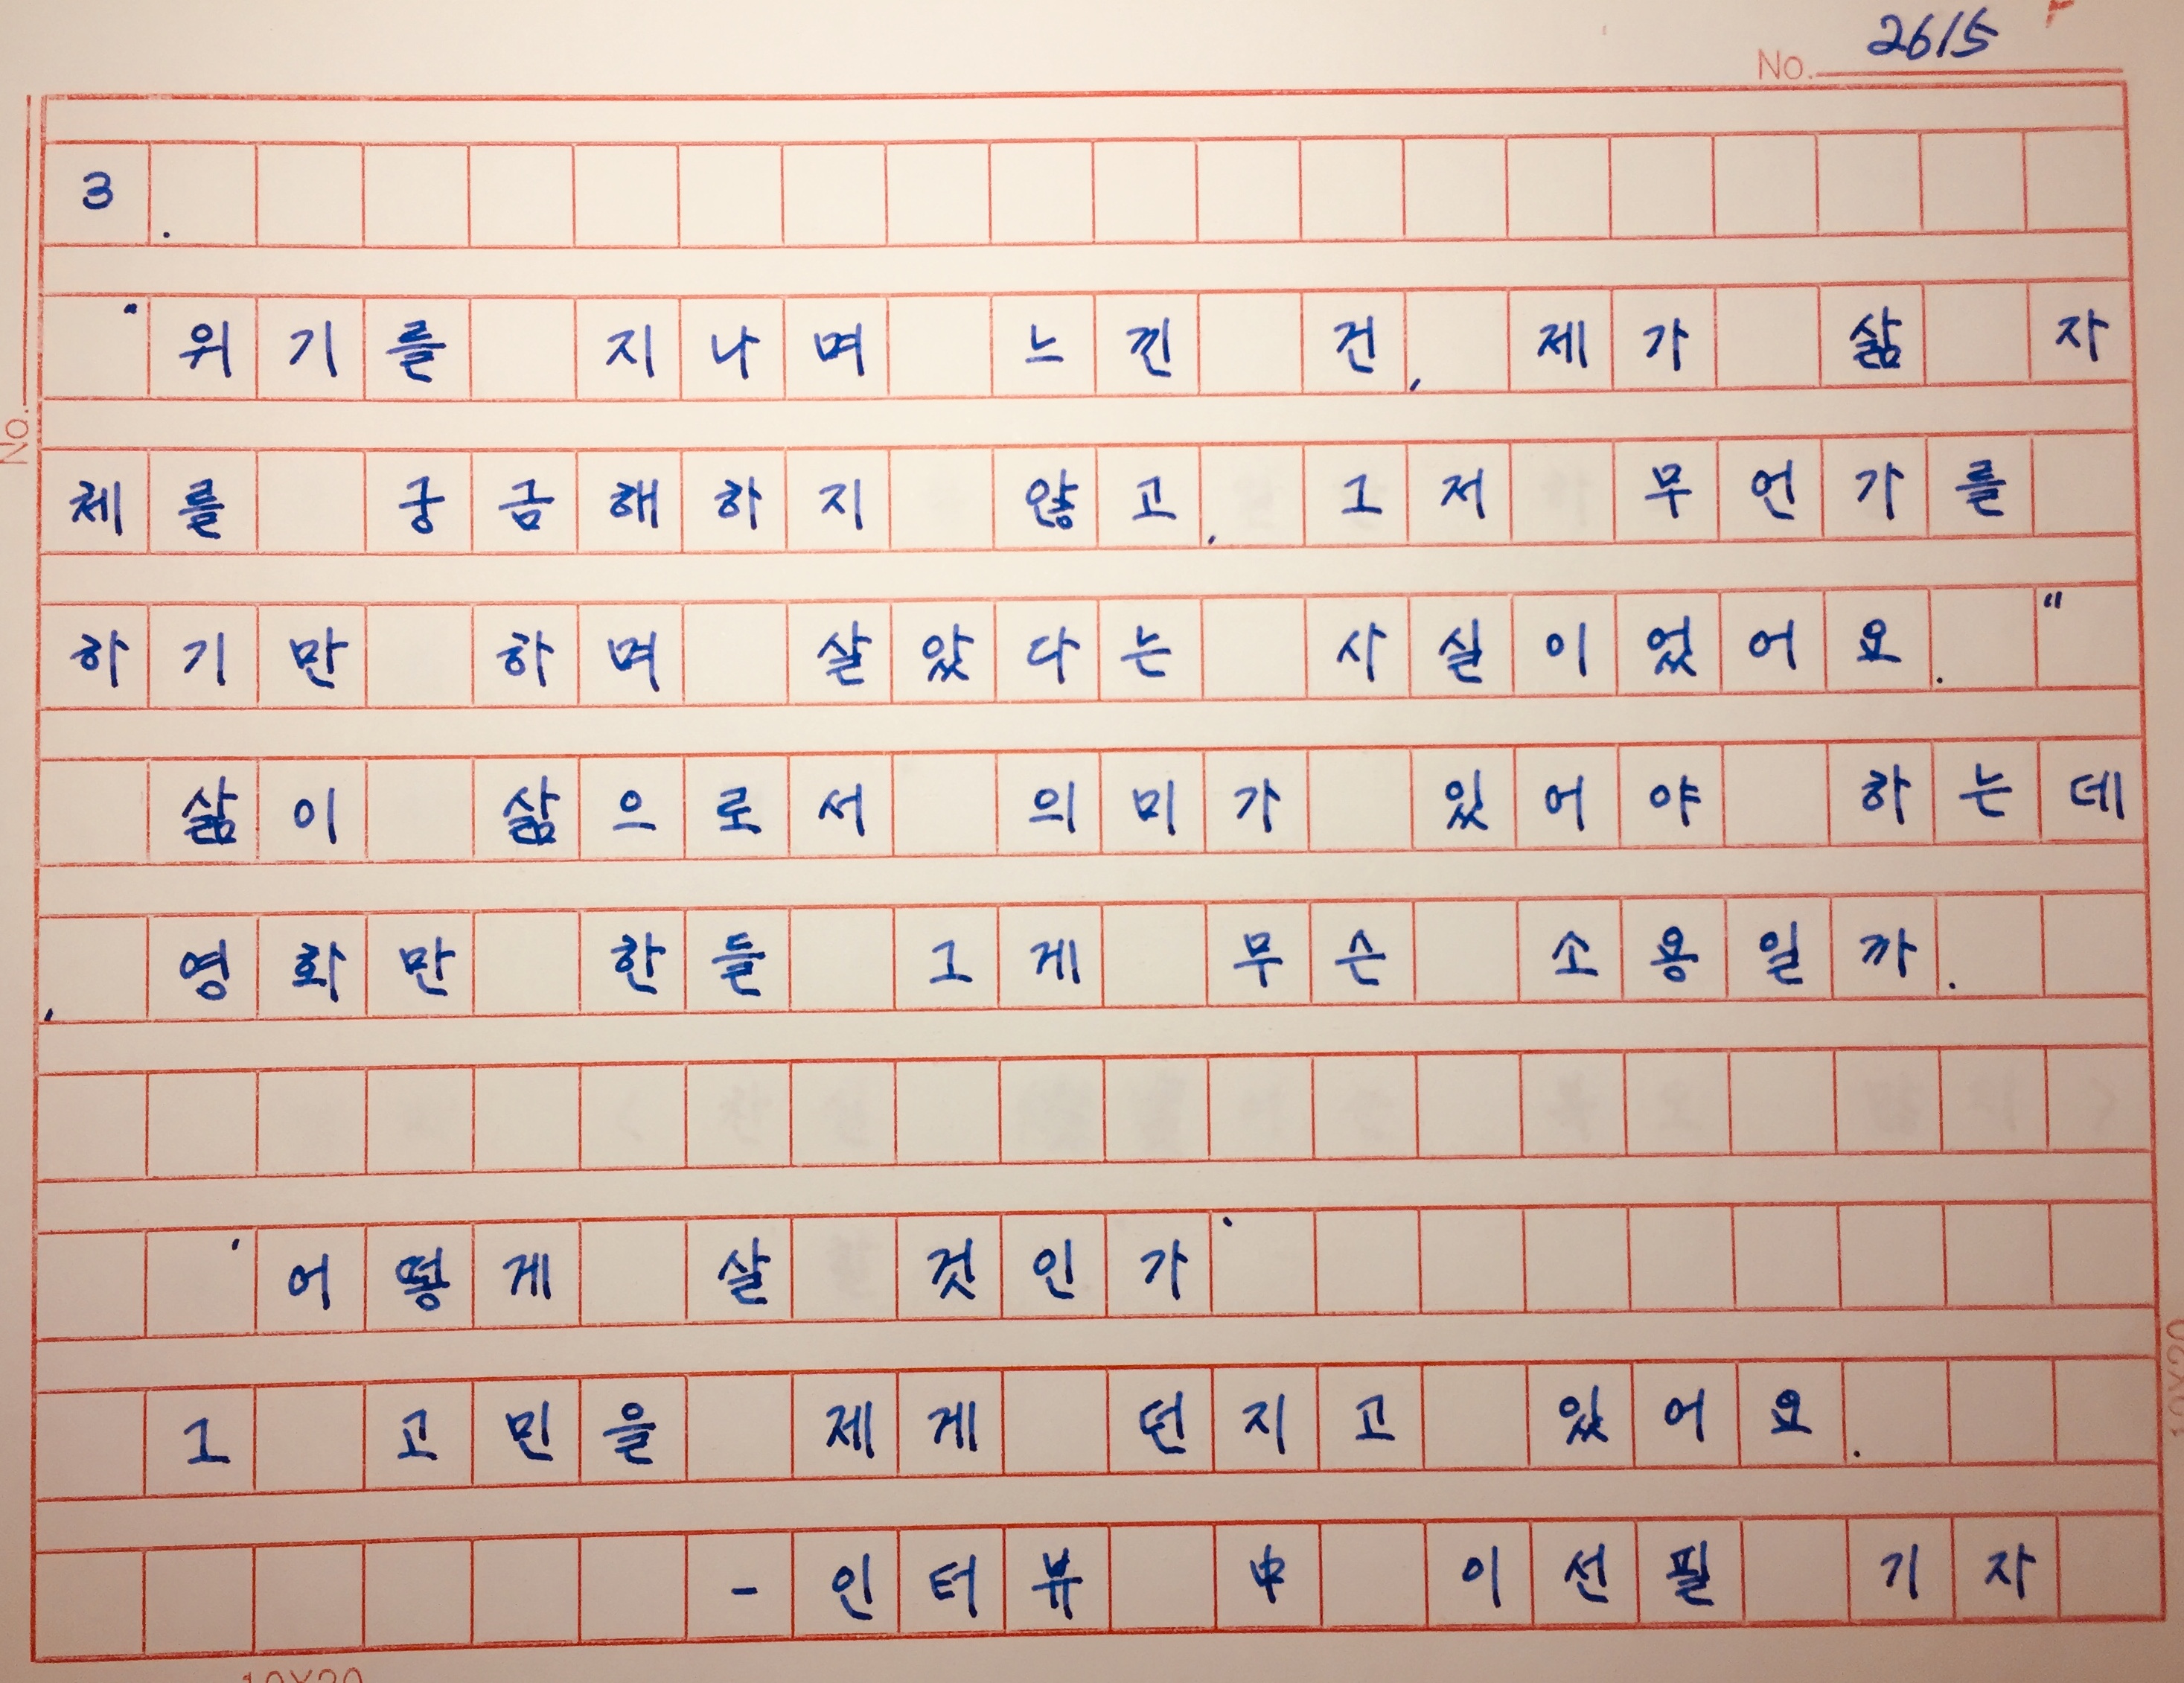 No. 2615
3.
"위기를 지나며 느낀 건, 제가 삶 자
체를 궁금해하지 않고, 그저 무언가를
하기만 하며 살았다는 사실이었어요."
삶이 삶으로서 의미가 있어야 하는데
, 영화만 한들 그게 무슨 소용일까.
'어떻게 살 것인가'
그 고민을 제게 던지고 있어요.
- 인터뷰 中 이선필 기자
No.
10X20
10X20